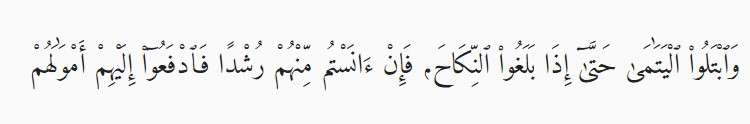 وَٱبْتَلُوا۟ ٱلْيَتَـٰمَىٰ حَتَّىٰٓ إِذَا بَلَغُوا۟ ٱلنِّكَاحَ. فَإِنْ ءَانَسْتُم مِّنْهُمْ رُشْدًا فَٱدْفَعُوٓا۟ إِلَيْهِمْ أَمْوَٰلَهُمْ